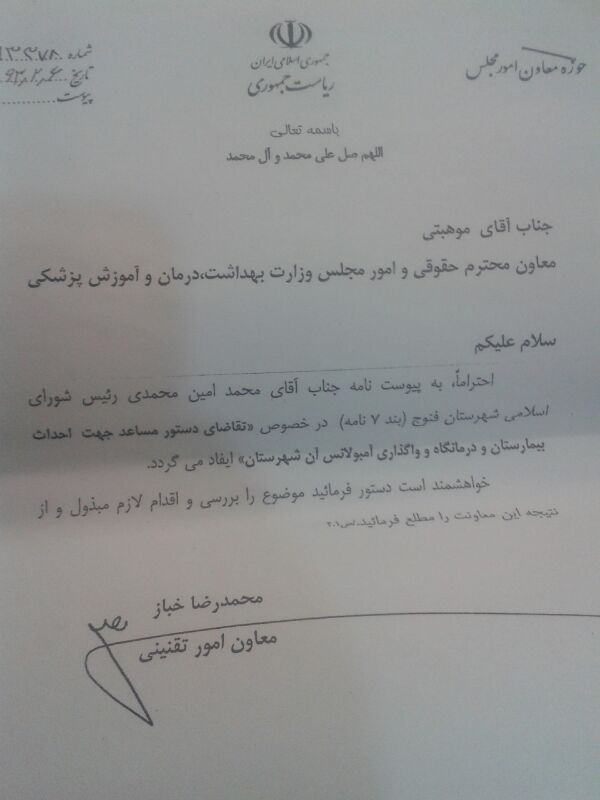 جمهوری اسلامی ایران
ریاست جمهوری
حوزه معاون امور مجلس
شماره
تاریخ ۹۳،۲،۶
پیوست
باسمه تعالی
اللهم صل علی محمد و آل محمد
جناب آقای موهبتی
معاون محترم حقوقی و امور مجلس وزارت بهداشت،درمان و آموزش پزشکی
سلام علیکم
احتراماً، به پیوست نامه جناب آقای محمد امین محمدی رئیس شورای
اسلامی شهرستان فنوج (بند ۷ نامه) در خصوص «تقاضای دستور مساعد جهت احداث
بیمارستان و درمانگاه و واگذاری آمبولانس آن شهرستان» ایفاد می گردد.
خواهشمند است دستور فرمائید موضوع را بررسی و اقدام لازم مبذول و از
نتیجه این معاونت را مطلع فرمائید.
محمدرضا خباز
معاون امور تقنینی